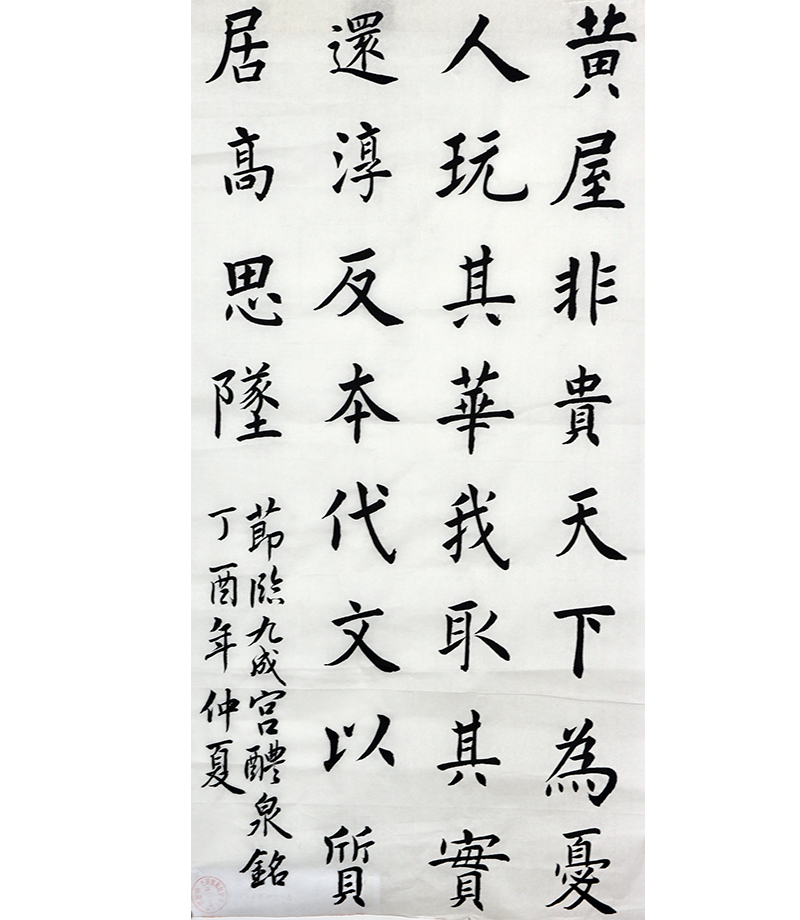 黄屋非貴天下為憂
人玩其華我取其實
還淳反本代文以質
居高思墜
節臨九成宮醴泉銘
丁酉年仲夏